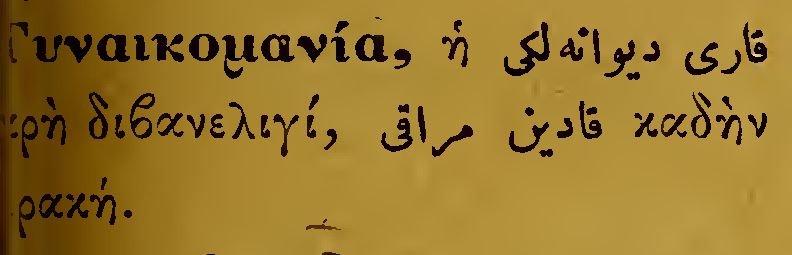 Γυναικομανία, ἡ قاری دیوانه‌لکی
κρὴ διβανελιγί, قادین مراقی καδὴν
ρακή.